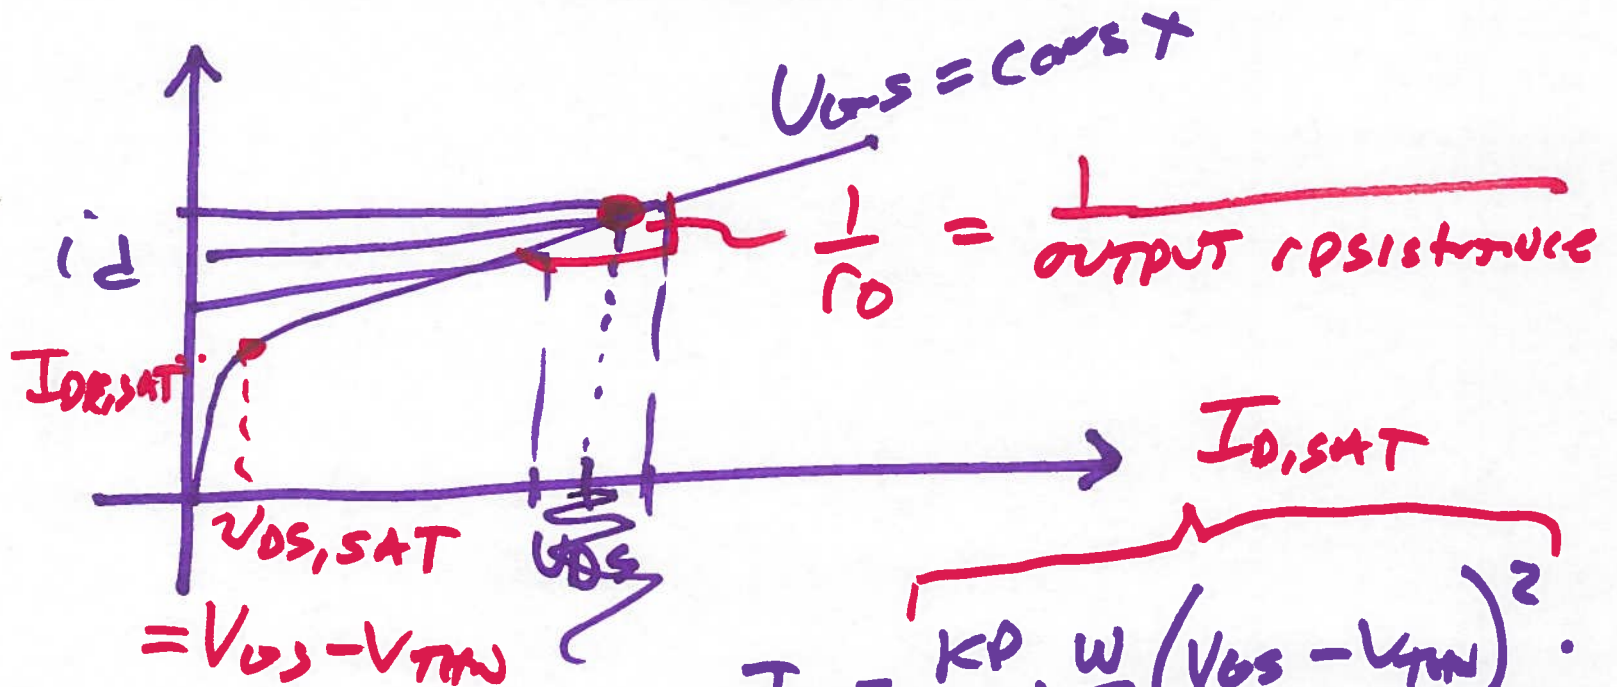 VGS = const
id
1/ro = 1/OUTPUT resistance
IDR,SAT
ID,SAT
VDS,SAT
VDS
= VGS - VTHN
KP W (VGS - VTHN)² ·